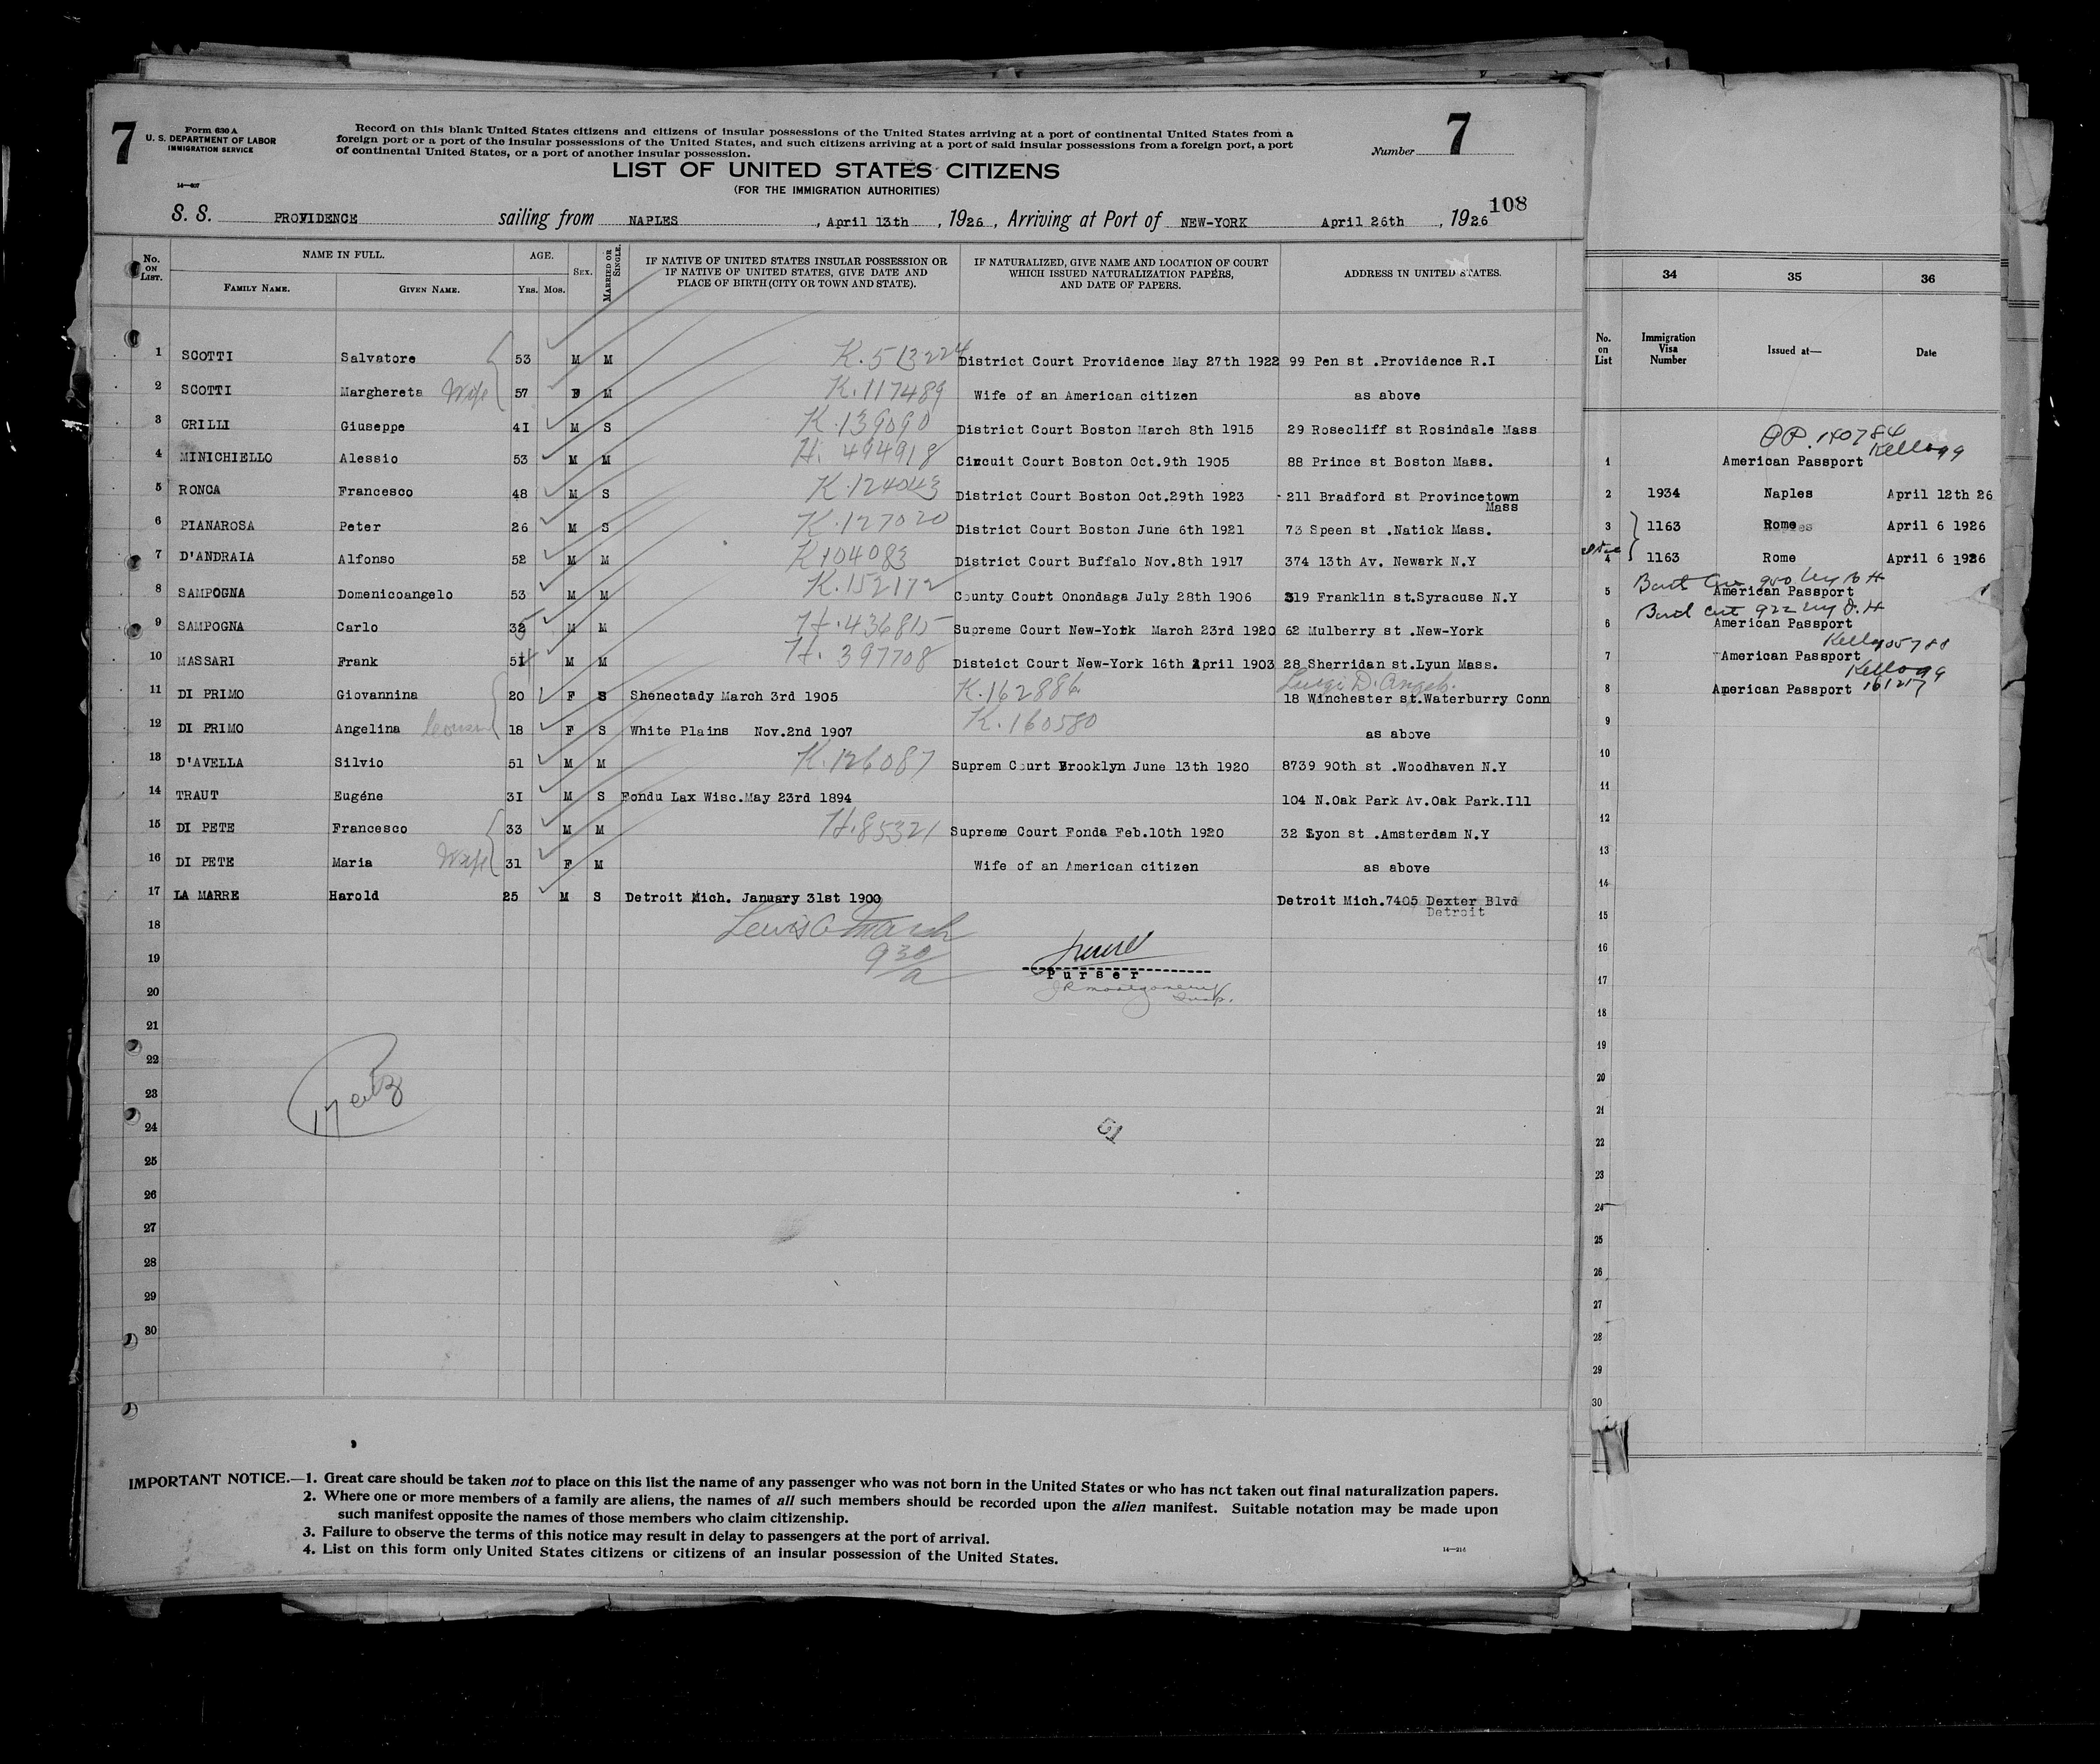 7
Form 630 A
U. S. DEPARTMENT OF LABOR
IMMIGRATION SERVICE
14—407
Record on this blank United States citizens and citizens of insular possessions of the United States arriving at a port of continental United States from a
foreign port or a port of the insular possessions of the United States, and such citizens arriving at a port of said insular possessions from a foreign port, a port
of continental United States, or a port of another insular possession.
Number 7
LIST OF UNITED STATES CITIZENS
(FOR THE IMMIGRATION AUTHORITIES)
108
S. S. PROVIDENCE sailing from NAPLES , April 13th , 1926 , Arriving at Port of NEW-YORK April 26th , 1926
No. ON LIST. NAME IN FULL. FAMILY NAME. GIVEN NAME. AGE. YRS. MOS. SEX. MARRIED OR SINGLE. IF NATIVE OF UNITED STATES INSULAR POSSESSION OR IF NATIVE OF UNITED STATES, GIVE DATE AND PLACE OF BIRTH (CITY OR TOWN AND STATE). IF NATURALIZED, GIVE NAME AND LOCATION OF COURT WHICH ISSUED NATURALIZATION PAPERS, AND DATE OF PAPERS. ADDRESS IN UNITED STATES.
1 SCOTTI Salvatore 53 M M K.513224 District Court Providence May 27th 1922 99 Pen st .Providence R.I
2 SCOTTI Marghereta Wife 57 F M K.117489 Wife of an American citizen as above
3 GRILLI Giuseppe 41 M S K.139090 District Court Boston March 8th 1915 29 Rosecliff st Rosindale Mass
4 MINICHIELLO Alessio 53 M M H. 494918 Circuit Court Boston Oct.9th 1905 88 Prince st Boston Mass.
5 RONCA Francesco 48 M S K.124043 District Court Boston Oct.29th 1923 211 Bradford st Provincetown
Mass
6 PIANAROSA Peter 26 M S K.127020 District Court Boston June 6th 1921 73 Speen st .Natick Mass.
7 D'ANDRAIA Alfonso 52 M M K104083 District Court Buffalo Nov.8th 1917 374 13th Av. Newark N.Y
8 SAMPOGNA Domenicoangelo 53 M M K.152172 County Court Onondaga July 28th 1906 319 Franklin st.Syracuse N.Y
9 SAMPOGNA Carlo 32 M M H.436815 Supreme Court New-York March 23rd 1920 62 Mulberry st .New-York
10 MASSARI Frank 51 M M H. 397708 Disteict Court New-York 16th April 1903 28 Sherridan st.Lyun Mass.
Luigi D. Angelo.
11 DI PRIMO Giovannina 20 F S Shenectady March 3rd 1905 K.162886 18 Winchester st.Waterburry Conn
12 DI PRIMO Angelina Cousin 18 F S White Plains Nov.2nd 1907 K.160580 as above
13 D'AVELLA Silvio 51 M M K.126087 Suprem Court Brooklyn June 13th 1920 8739 90th st .Woodhaven N.Y
14 TRAUT Eugéne 31 M S Fondu Lax Wisc.May 23rd 1894 104 N.Oak Park Av.Oak Park.Ill
15 DI PETE Francesco 33 M M H.85321 Supreme Court Fonda Feb.10th 1920 32 Lyon st .Amsterdam N.Y
16 DI PETE Maria Wife 31 F M Wife of an American citizen as above
17 LA MARRE Harold 25 M S Detroit Mich. January 31st 1900 Detroit Mich.7405 Dexter Blvd
Detroit
18 Lewis C Marsh
19 930/a
Purser
JR Montgomery
Insp.
20
21
22
23
24
25
26
27
28
29
30
IMPORTANT NOTICE.—1. Great care should be taken not to place on this list the name of any passenger who was not born in the United States or who has not taken out final naturalization papers.
2. Where one or more members of a family are aliens, the names of all such members should be recorded upon the alien manifest. Suitable notation may be made upon
such manifest opposite the names of those members who claim citizenship.
3. Failure to observe the terms of this notice may result in delay to passengers at the port of arrival.
4. List on this form only United States citizens or citizens of an insular possession of the United States.
14—216
34 35 36
No. on List Immigration Visa Number Issued at— Date
PP. 140784
Kellogg
1 American Passport
2 1934 Naples April 12th 26
3 1163 Rome April 6 1926
4 1163 Rome April 6 1926
5 American Passport
6 American Passport
7 American Passport
Kellogg
8 American Passport 161217
9
10
11
12
13
14
15
16
17
18
19
20
21
22
23
24
25
26
27
28
29
30